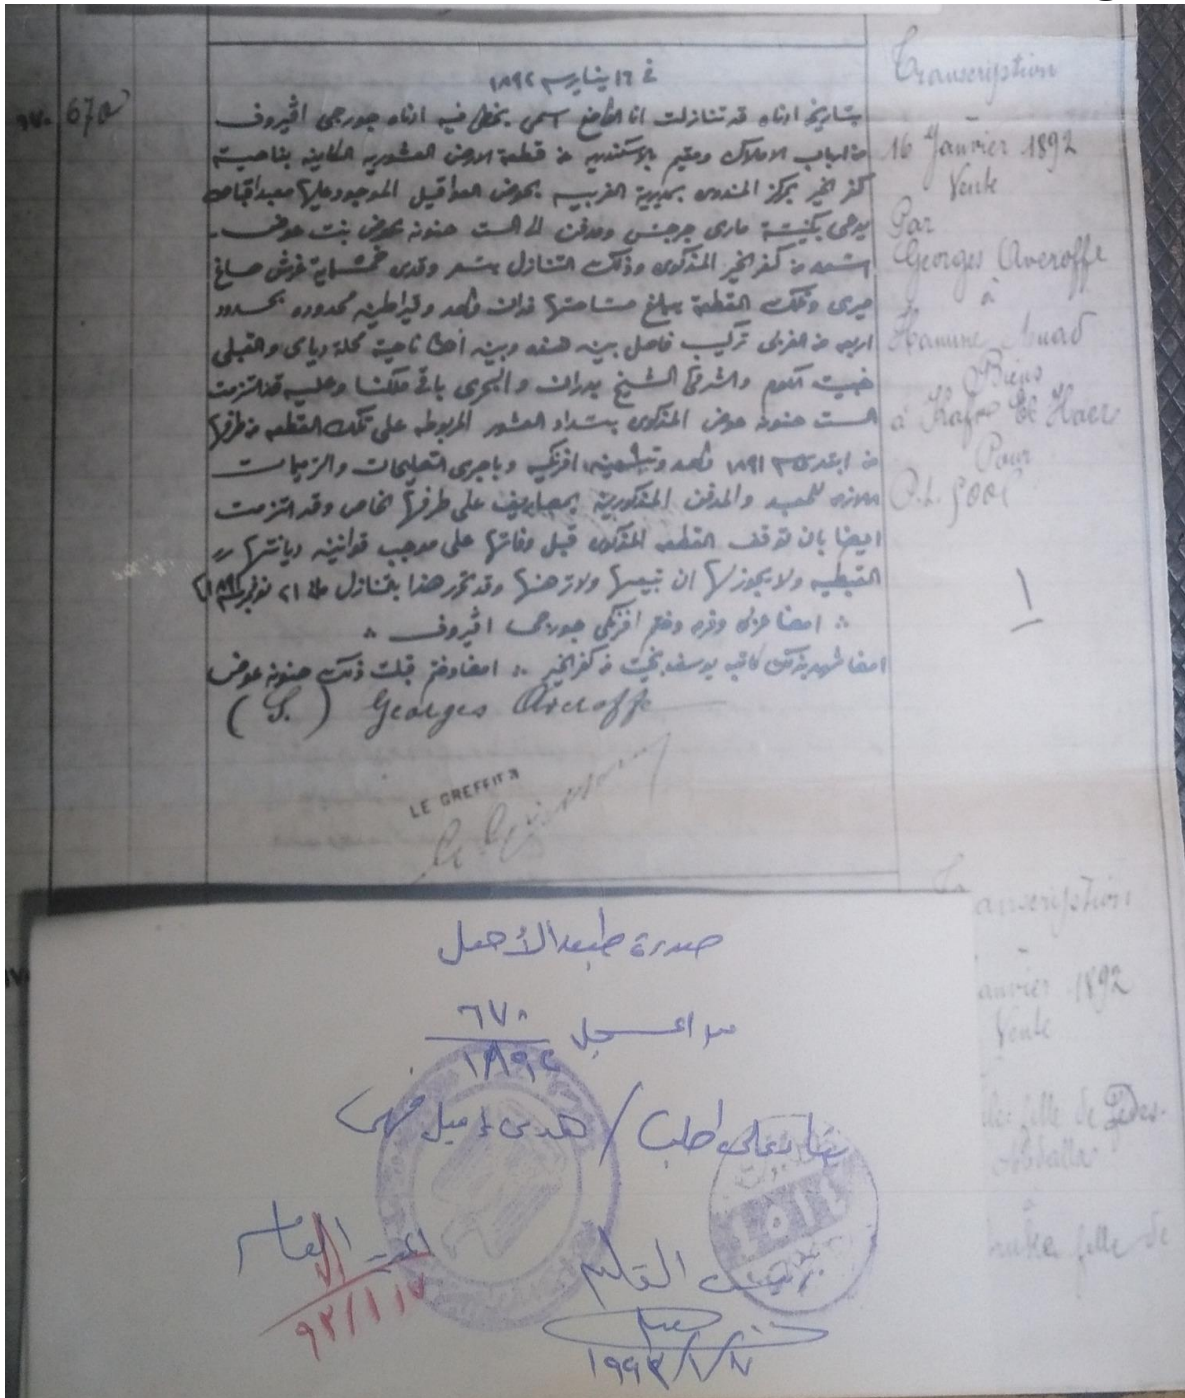 ٦٧٠
67a
في ١٦ يناير سنة ١٨٩٢
بتاريخ ادناه قد تنازلت انا الواضع اسمي بخطي فيه ادناه جورجى اڤيروف
من ارباب الاملاك ومقيم بالاسكندريه عن قطعة الارض العشوريه الكاينه بناحية
كفر الخير بمركز المندوره بمديرية الغربيه بحوض العواقيل الموجود عليها معبد اقباط
يدعى بكنيسة مارى جرجس ومدفن الى الست حنونه عوض بنت عوض
اسعد من كفر الخير المذكوره وذلك التنازل بسعر وقدره خمسماية غرش صاغ
ميرى وتلك القطعة يبلغ مساحتها فدان واحد وقيراطين محدوده بحدود
اربعه من الغربى تركيب فاصل بين هذه وبين أطيان ناحية محلة دياى والقبلى
بخيت الكوم والشرقى الشيخ بدران والبحرى باقى ملكنا وعليه قد التزمت
الست حنونه عوض المذكوره بسداد العشور المربوطه على تلك القطعه من طرفها
من ابتدى سنه ١٨٩١ واحد وتسعين افرنكيه وباجرى التعليمات والترميمات
اللازمه للمعبد والمدفن المذكورين بمصاريف على طرفها الخاص وقد التزمت
ايضا بان توقف القطعه المذكوره قبل وفاتها على موجب قوانين ديانتها
القبطيه ولا يجوز لها ان تبيعها ولا ترهنها وقد تحرر هذا بالتنازل ٢١ نوفمبر سنه
امضا عربى وفره وختم افرنكى جورجى اڤيروف
امضا شهد بذلك كاتبه يوسف بخيت من كفر الخير امضا وختم قبلت ذلك حنونه عوض
(S.) Georges Averoffe
LE GREFFIER
Transcription
16 Janvier 1892
Vente
Par
Georges Averoffe
à
Hanune Auad
Biens
à Kafre El Haer
Pour
P.T. 500
١
Transcription
Janvier 1892
Vente
fille de Gedes
Abdalla
à
fille de
صورة طبق الأصل
من المسجل ٦٧٠
١٨٩٢
بناء على طلب / هدى اميل فهمى
رئيس القلم
١٩٩٢/١/٧
أمين العام
٩٢/١/٧